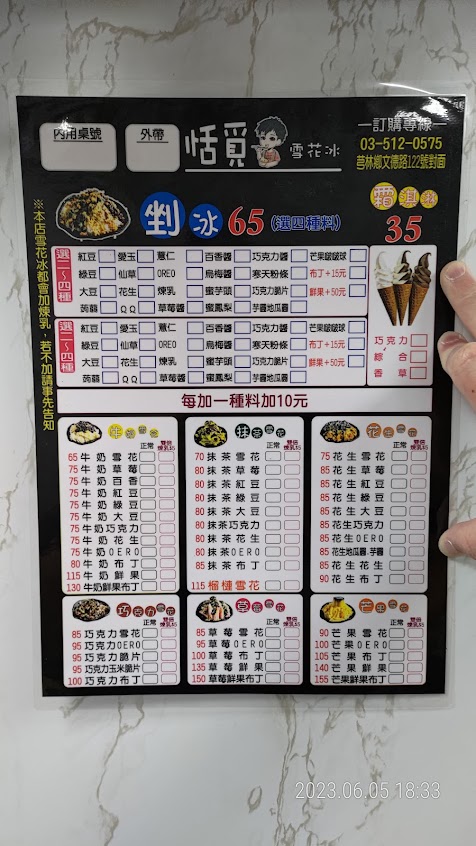 內用桌號
外帶
恬覓
雪花冰
訂購專線
03-512-0575
芎林鄉文德路122號對面
剉冰65(選四種料)
霜淇淋
35
※本店雪花冰都會加煉乳，若不加請事先告知
選二~四種
紅豆 愛玉 薏仁 百香醬 巧克力醬 芒果啵啵球
綠豆 仙草 OREO 烏梅醬 寒天粉條 布丁+15元
大豆 花生 煉乳 蜜芋頭 巧克力脆片 鮮果+50元
蒟蒻 QQ 草莓醬 蜜鳳梨 芋醬地瓜醬
選二~四種
紅豆 愛玉 薏仁 百香醬 巧克力醬 芒果啵啵球
綠豆 仙草 OREO 烏梅醬 寒天粉條 布丁+15元
大豆 花生 煉乳 蜜芋頭 巧克力脆片 鮮果+50元
蒟蒻 QQ 草莓醬 蜜鳳梨 芋醬地瓜醬
巧克力
綜合
香草
每加一種料加10元
牛奶雪花
正常 雙倍煉乳$5
65牛奶雪花
75牛奶草莓
75牛奶百香
75牛奶紅豆
75牛奶綠豆
75牛奶大豆
75牛奶巧克力
75牛奶花生
75牛奶OERO
80牛奶布丁
115牛奶鮮果
130牛奶鮮果布丁
抹茶雪花
正常 雙倍煉乳$5
70抹茶雪花
80抹茶草莓
80抹茶紅豆
80抹茶綠豆
80抹茶大豆
80抹茶巧克力
80抹茶花生
80抹茶OERO
85抹茶布丁
115榴槤雪花
花生雪花
正常 雙倍煉乳$5
75花生雪花
85花生草莓
85花生紅豆
85花生綠豆
85花生大豆
85花生巧克力
85花生OERO
85花生地瓜醬.芋醬
85花生花生
90花生布丁
巧克力雪花
正常 雙倍煉乳$5
85巧克力雪花
95巧克力OERO
95巧克力脆片
95巧克力玉米脆片
100巧克力布丁
草莓雪花
正常 雙倍煉乳$5
85草莓雪花
95草莓OERO
100草莓布丁
135草莓鮮果
150草莓鮮果布丁
芒果雪花
正常 雙倍煉乳$5
90芒果雪花
100芒果OERO
105芒果布丁
140芒果鮮果
155芒果鮮果布丁
2023.06.05 18:33